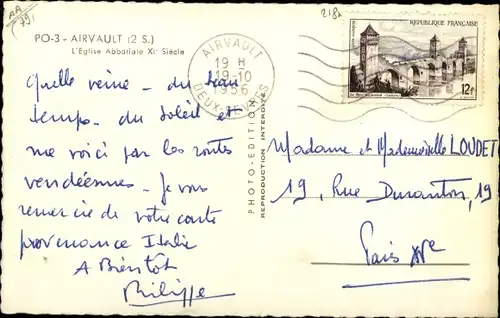 AA
791
218A
PO-3 - AIRVAULT (2 S.)
L'Église Abbatiale XIᵉ Siècle
AIRVAULT
19 H
19-10
1956
DEUX-SÈVRES
REPUBLIQUE FRANÇAISE
12F
Quelle veine - du beau
temps - du soleil et
me voici par les routes
vendéennes - Je vous
remercie de votre carte
provenance Italie
A Bientôt
Philippe
PHOTO-EDITION
REPRODUCTION INTERDITE
Madame et Mademoiselle LOUDET
19, Rue Duranton, 19
Paris XVe